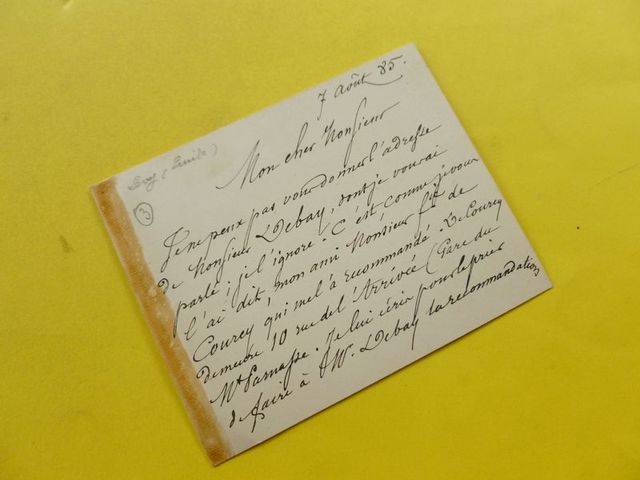 7 Août 85.
Levy (Emile)
3
Mon cher Monsieur
Je ne peux pas vous donner l'adresse
de Monsieur Debay, dont je vous ai
parlé ; je l'ignore. C'est comme je vous
l'ai dit, mon ami Monsieur fçk de
Courcy qui me l'a recommandé. De Courcy
demeure 10 rue de l'Arrivée (Gare du
Mt Parnasse. Je lui écris pour le prier
de faire à Mr. Debay la recommandation